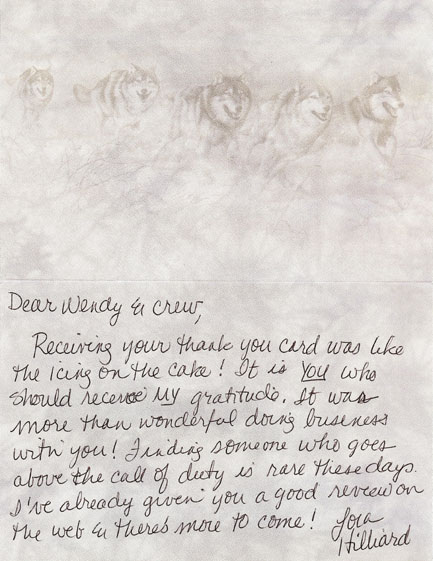 Dear Wendy & crew,
Receiving your thank you card was like
the icing on the cake! It is YOU who
should receive MY gratitude. It was
more than wonderful doing business
with you! Finding someone who goes
above the call of duty is rare these days.
I've already given you a good review on
the web & there's more to come! Lora
Hilliard